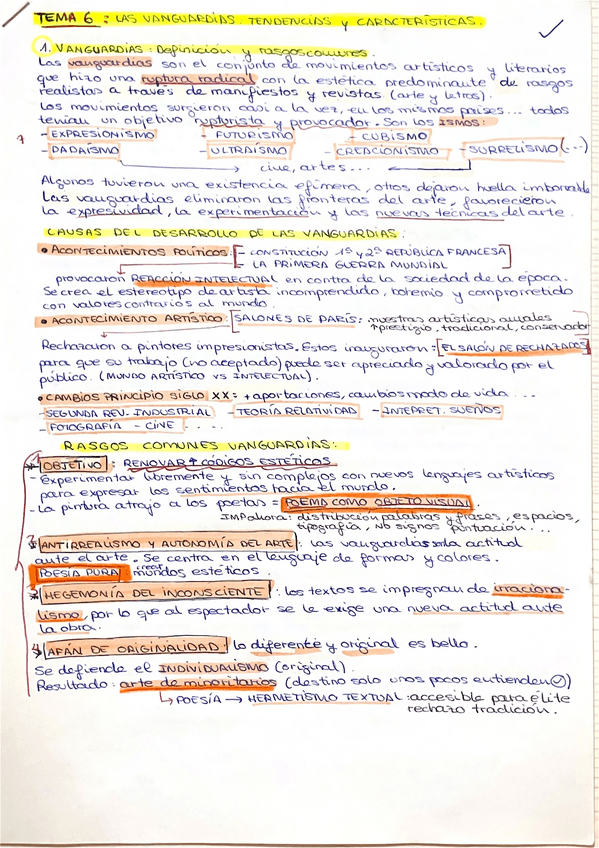 TEMA 6 : LAS VANGUARDIAS. TENDENCIAS y CARACTERÍSTICAS.
1. VANGUARDIAS: Definición y rasgos comunes.
Las vanguardias son el conjunto de movimientos artísticos y literarios
que hizo una ruptura radical con la estética predominante de rasgos
realistas a través de manifiestos y revistas (arte y letras).
Los movimientos surgieron casi a la vez, en los mismos países... todos
tenían un objetivo rupturista y provocador. Son los ISMOS:
- EXPRESIONISMO - FUTURISMO - CUBISMO
- DADAÍSMO - ULTRAÍSMO - CREACIONISMO - SURRELISMO (...)
cine, artes...
Algunos tuvieron una existencia efímera, otros dejaron huella imborrable
Las vanguardias eliminaron las fronteras del arte, favorecieron
la expresividad, la experimentación y las nuevas técnicas del arte.
CAUSAS DEL DESARROLLO DE LAS VANGUARDIAS:
• ACONTECIMIENTOS POLÍTICOS: - CONSTITUCIÓN 1ª y 2ª REPÚBLICA FRANCESA
- LA PRIMERA GUERRA MUNDIAL
provocaron REACCIÓN INTELECTUAL en contra de la sociedad de la época.
Se crea el estereotipo de artista incomprendido, bohemio y comprometido
con valores contrarios al mundo.
• ACONTECIMIENTO ARTÍSTICO: SALONES DE PARÍS: muestras artísticas anuales
+ prestigio, tradicional, conservador
Rechazaron a pintores impresionistas. Estos inauguraron: EL SALÓN DE RECHAZADOS
para que su trabajo (no aceptado) puede ser apreciado y valorado por el
público. (MUNDO ARTÍSTICO VS INTELECTUAL).
• CAMBIOS PRINCIPIO SIGLO XX: + aportaciones, cambios modo de vida ...
- SEGUNDA REV. INDUSTRIAL - TEORÍA RELATIVIDAD - INTEPRET. SUEÑOS
- FOTOGRAFÍA - CINE ....
RASGOS COMUNES VANGUARDIAS:
OBJETIVO: RENOVAR CÓDIGOS ESTÉTICOS
- Experimentar libremente y sin complejos con nuevos lenguajes artísticos
para expresar los sentimientos hacia el mundo.
- La pintura atrajo a los poetas = POEMA COMO OBJETO VISUAL.
IMP ahora: distribución palabras y frases, espacios,
tipografía, NO signos puntuación...
ANTIRREALISMO Y AUTONOMÍA DEL ARTE: las vanguardias actitud
ante el arte. Se centra en el lenguaje de formas y colores.
POESÍA PURA crear mundos estéticos.
HEGEMONÍA DEL INCONSCIENTE: los textos se impregnan de irraciona-
lismo, por lo que al espectador se le exige una nueva actitud ante
la obra.
AFÁN DE ORIGINALIDAD: lo diferente y original es bello.
Se defiende el INDIVIDUALISMO (original).
Resultado: arte de minoritarios (destino solo unos pocos entienden)
POESÍA → HERMETISMO TEXTUAL: accesible para élite
rechazo tradición.